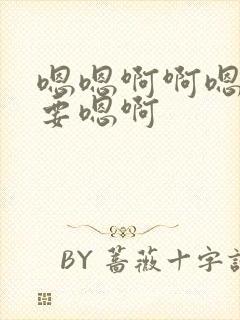 嗯嗯啊啊嗯
要嗯啊
BY 蔷薇十字